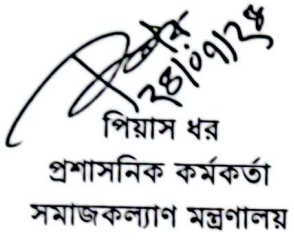 ২৪/০৭/২৪
পিয়াস ধর
প্রশাসনিক কর্মকর্তা
সমাজকল্যাণ মন্ত্রণালয়